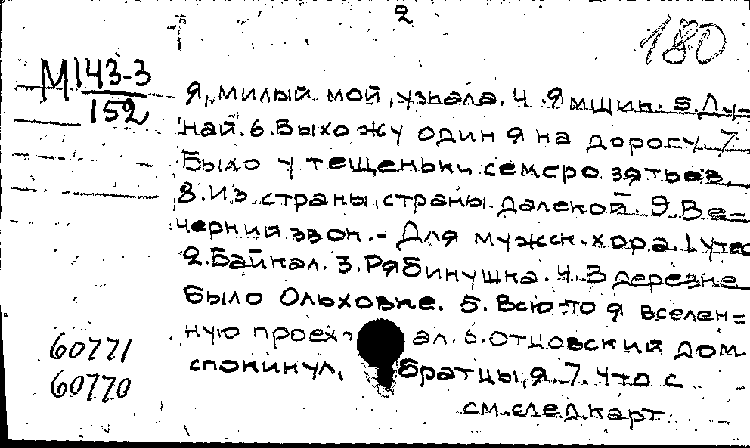 2
180
М143-3
152
я, милый мой, узнала. 4. Ямщик. 5. Ду=
най. 6. Выхожу один я на дорогу. 7.
Было у тещеньки семеро зятьев.
8. Из страны, страны далекой. 9. Ве=
черний звон. - Для мужск. хора. 1 утес
2. Байкал. 3. Рябинушка. 4. В деревне
было Ольховке. 5. Всю-то я вселен=
ную проехал. 6. Отцовский дом
спокинул, братцы, я. 7. Что с
см. след. карт.
60771
60770